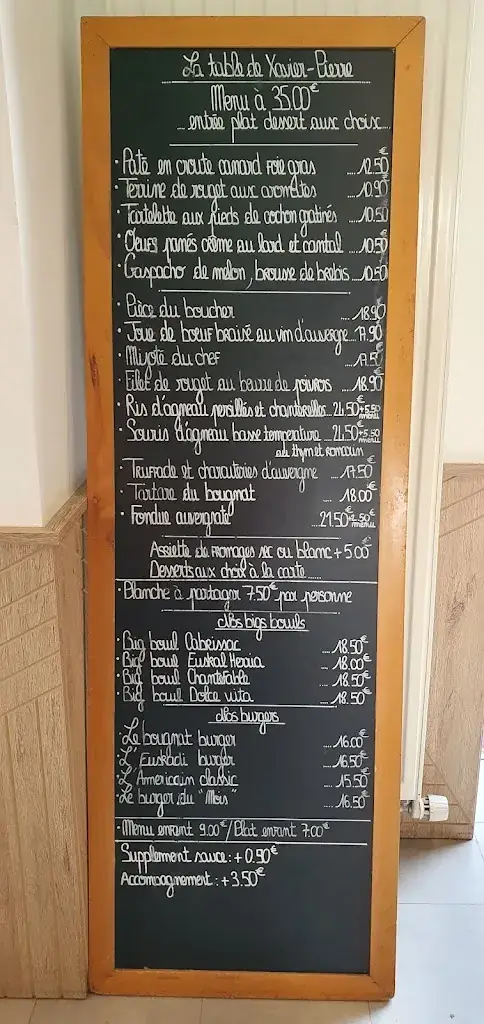 La table de Xavier-Pierre
Menu à 35.00€
... entrée plat dessert aux choix...
· Paté en croute canard foie gras ....12.50€
· Terrine de rouget aux aromates ....10.90€
· Tartelette aux pieds de cochon gratinés ....10.50€
· Oeufs panés crème au lard et cantal ....10.50€
· Gaspacho de melon, brousse de brebis ....10.50€
· Pièce du boucher .... 18.90€
· Joue de boeuf braisé au vin d'auvergne ...17.90€
· Mijoté du chef .... 17.50€
· Filet de rouget au beurre de poivrons .... 18.90€
· Ris d'agneau persillés et chanterelles ...24.50€+5.50 menu
· Souris d'agneau basse température ...24.50€+5.50 menu
au thym et romarin
· Truffade et charcuteries d'auvergne .... 17.50€
· Tartare du bougnat .... 18.00€
· Fondue auvergnate ....21.50€+2.50€ menu
Assiette de fromages sec ou blanc + 5.00€
Desserts aux choix à la carte .....
· Planche à partager 7.50€ par personne
Nos bigs bowls
· Big bowl Cabreissac .... 18.50€
· Big bowl Euskal Herria .... 18.00€
· Big bowl Chanterable .... 18.50€
· Big bowl Dolce vita .... 18.50€
Nos burgers
· Le bougnat burger .... 16.00€
· L' Euskadi burger .... 16.50€
· L'Americain classic .... 15.50€
· Le burger du "Mois" .... 16.50€
· Menu enfant 9.00€ / Plat enfant 7.00€
Supplement sauce : + 0.90€
Accompagnement : + 3.50€